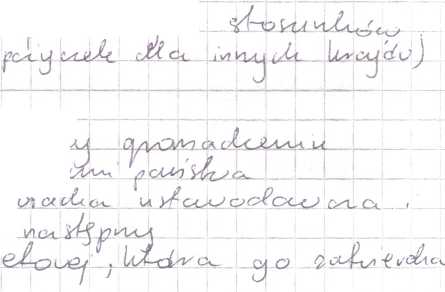 stosunków
pożyczek dla innych krajów)
y gromadzeniu
mi państwa
władza ustawodawcza.
następny
etowej, która go zatwierdza